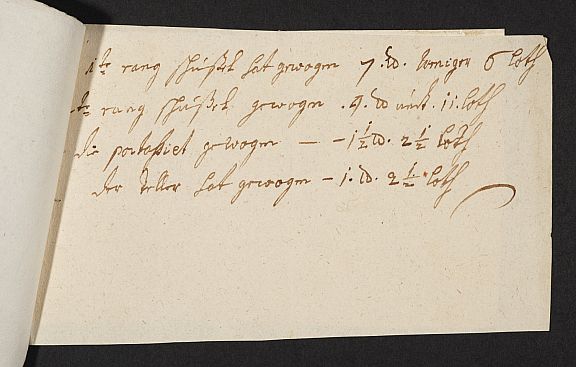 1te rang schüßel hat gewogen 7. ℔. weniger 6 loth
2te rang schüßel gewogen . 9. ℔ undt . 11. loth
die gewogen — – 1 1/2 ℔. 2 1/2 loth
der teller hat gewogen – 1. ℔. 2 1/2 loth